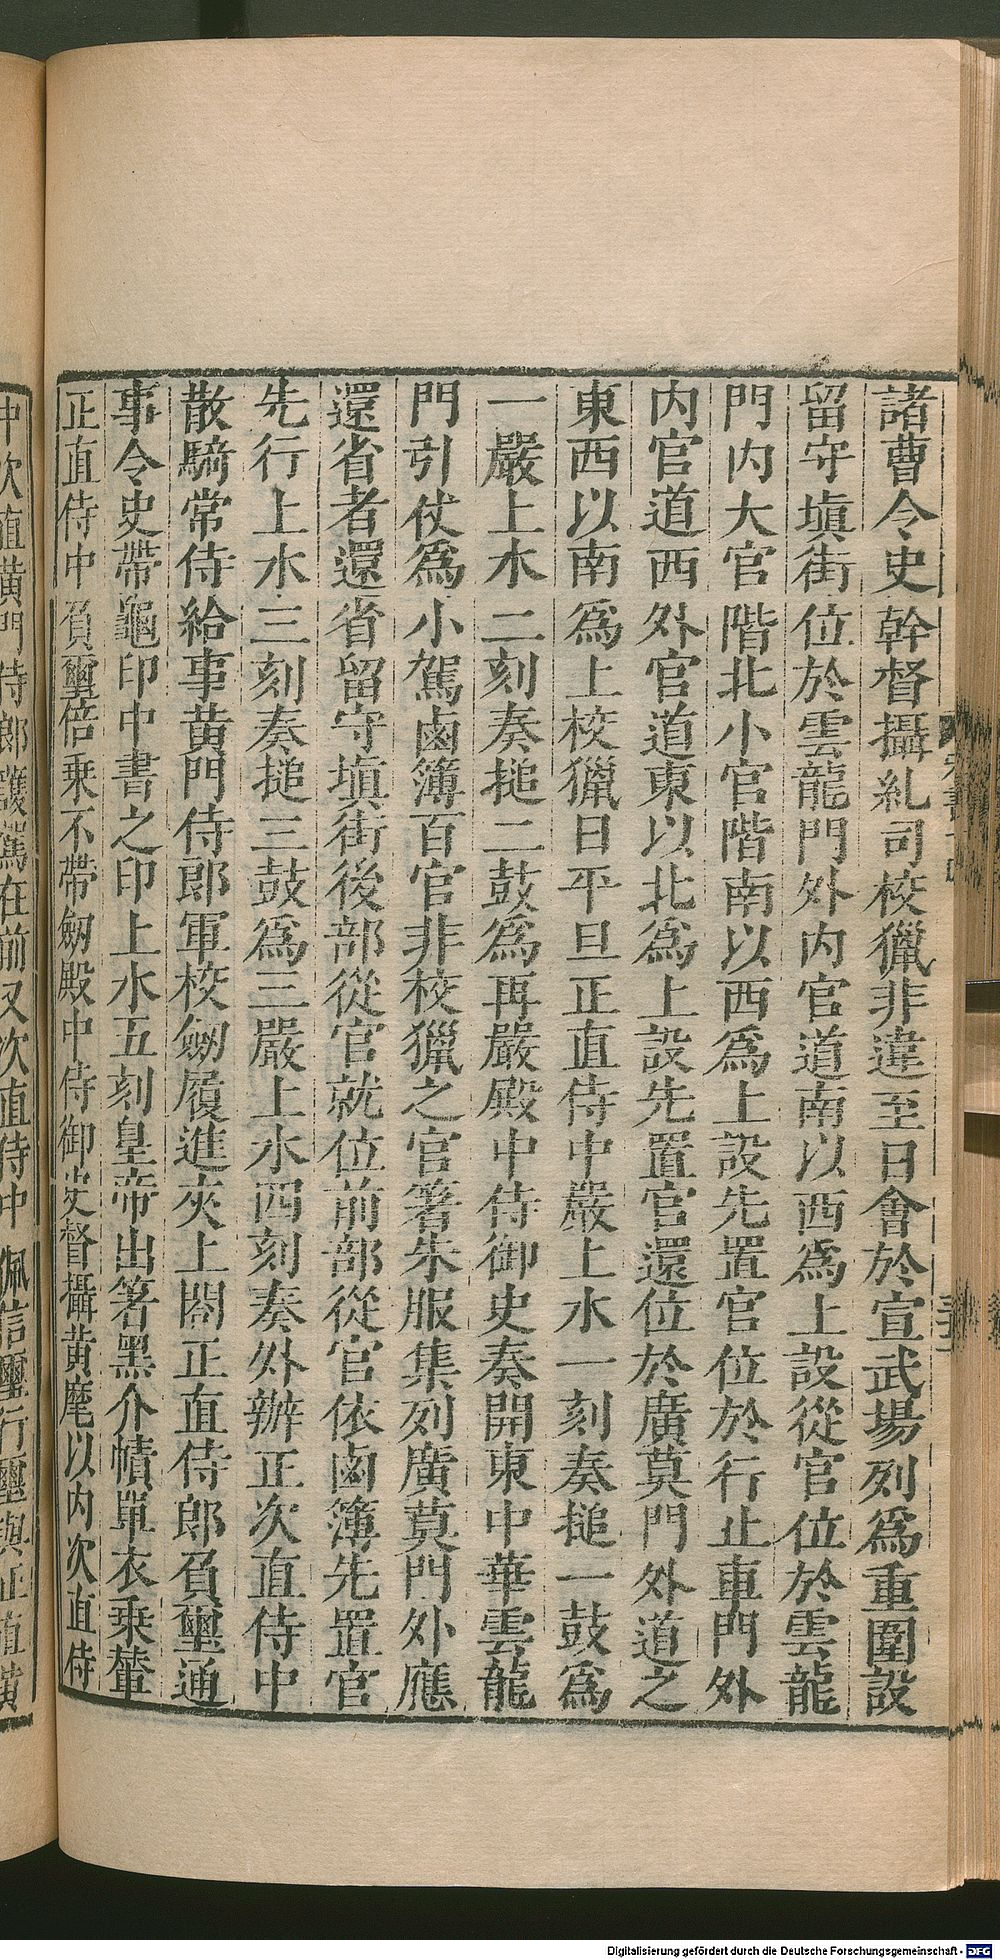 諸曹令史幹督攝糺司校獵非違至日會於宣武場列爲重圍設
留守塡街位於雲龍門外內官道南以西爲上設從官位於雲龍
門內大官階北小官階南以西爲上設先置官位於行止車門外
內官道西外官道東以北爲上設先置官還位於廣莫門外道之
東西以南爲上校獵日平旦正直侍中嚴上水一刻奏搥一鼓爲
一嚴上水二刻奏搥二鼓爲再嚴殿中侍御史奏開東中華雲龍
門引仗爲小駕鹵簿百官非校獵之官著朱服集列廣莫門外應
還省者還省留守塡街後部從官就位前部從官依鹵簿先置官
先行上水三刻奏搥三鼓爲三嚴上水四刻奏外辦正次直侍中
散騎常侍給事黃門侍郎軍校劒履進夾上閤正直侍郎負璽通
事令史帶龜印中書之印上水五刻皇帝出著黑介幘單衣乗輦
正直侍中負璽倍乗不帶劒殿中侍御史督攝黃麾以內次直侍
中次直黃門侍郎護駕在前又次直侍中佩信璽行璽與正直黃
Digitalisierung gefördert durch die Deutsche Forschungsgemeinschaft - DFG